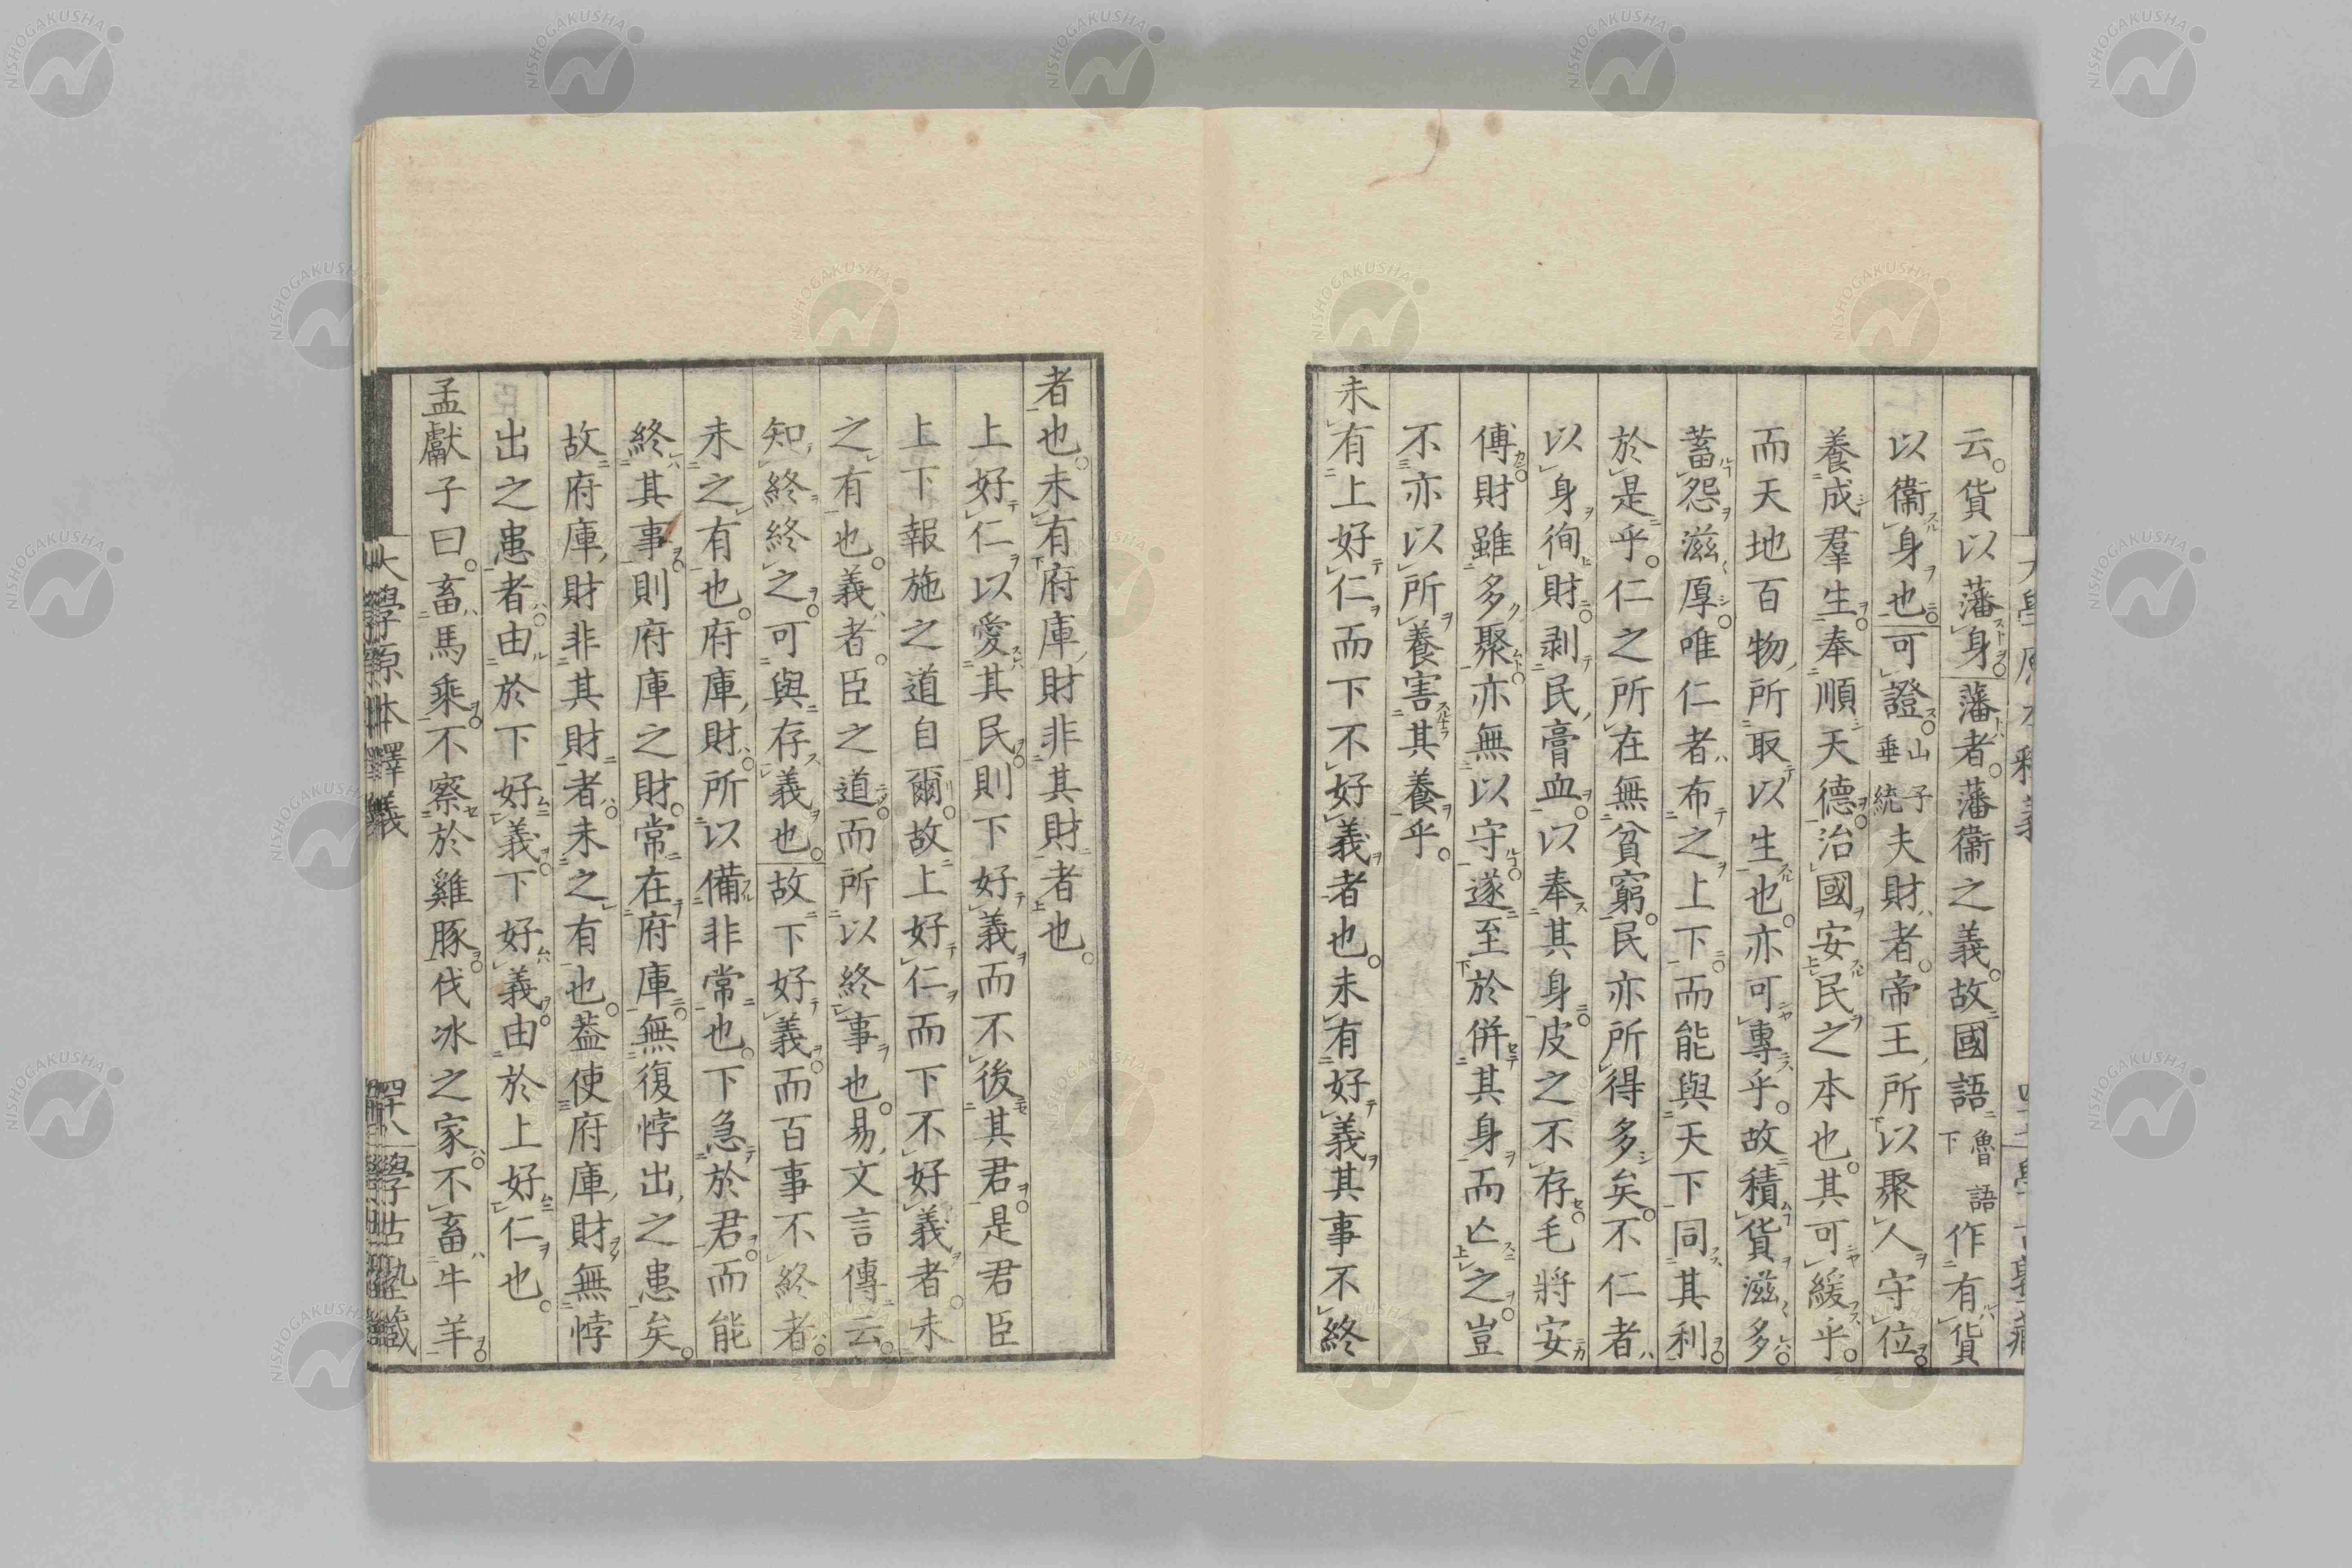 云。貨以藩身。藩者。藩衞之義。故國語魯語下作有貨
以衞身也可證。山子垂統夫財者。帝王所以聚人守位。
養成羣生。奉順天德。治國安民之本也。其可緩乎。
而天地百物所取以生也。亦可專乎。故積貨滋多。
蓄怨滋厚。唯仁者布之上下。而能與天下同其利。
於是乎。仁之所在無貧窮。民亦所得多矣。不仁者
以身徇財。剥民膏血。以奉其身。皮之不存。毛將安
傅。財雖多聚。亦無以守。遂至於併其身而亡之。豈
不亦以所養害其養乎。
未有上好仁而下不好義者也。未有好義其事不終
者也。未有府庫財非其財者也。
上好仁以愛其民。則下好義而不後其君。是君臣
上下報施之道自爾。故上好仁而下不好義者。未
之有也。義者。臣之道。而所以終事也。易文言傳云。
知終終之。可與存義也。故下好義。而百事不終者。
未之有也。府庫財。所以備非常也。下急於君。而能
終其事。則府庫之財。常在府庫。無復悖出之患矣。
故府庫財非其財者。未之有也。葢使府庫財無悖
出之患者。由於下好義。下好義。由於上好仁也。
孟獻子曰。畜馬乘。不察於雞豚。伐冰之家。不畜牛羊。
大學原本釋義 四十八 學古塾藏